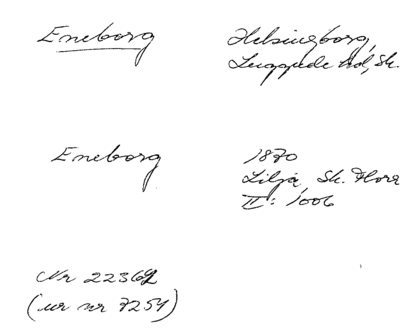 Eneborg
Helsingborg,
Luggude hd, Sk.
Eneborg
1870
Lilja, Sk. Flora
II: 1006
Nr 22364
(ur nr 7254)